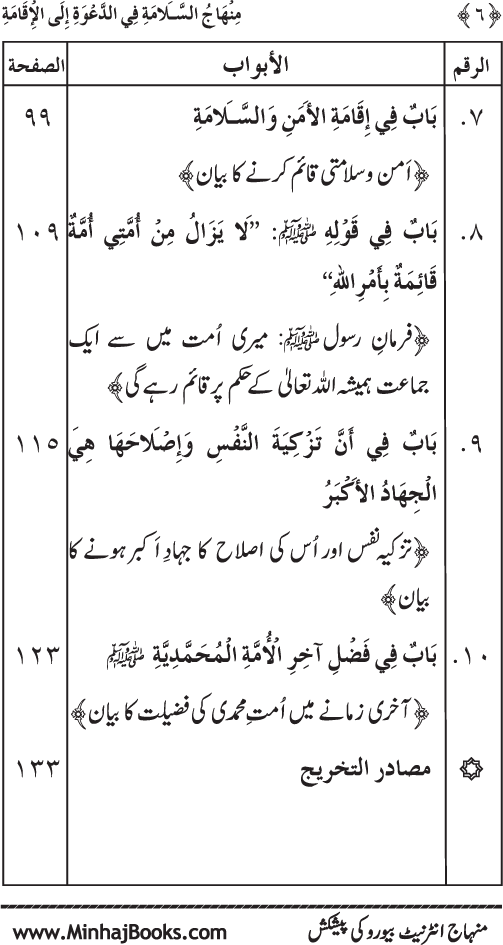 ﴿٦﴾ مِنْهَاجُ السَّلَامَةِ فِي الدَّعْوَةِ إِلَى الْإِقَامَةِ
الرقم الأبواب الصفحة
٧. بَابٌ فِي إِقَامَةِ الأَمْنِ وَالسَّلَامَةِ ٩٩
﴿اَمن وسلامتی قائم کرنے کا بیان﴾
٨. بَابٌ فِي قَوْلِهِ ﷺ: ”لَا يَزَالُ مِنْ أُمَّتِي أُمَّةٌ ١٠٩
قَائِمَةٌ بِأَمْرِ اللهِ“
﴿فرمانِ رسول ﷺ: میری اُمت میں سے ایک
جماعت ہمیشہ اللہ تعالیٰ کے حکم پر قائم رہے گی﴾
٩. بَابٌ فِي أَنَّ تَزْكِيَةَ النَّفْسِ وَإِصْلَاحَهَا هِيَ ١١٥
الْجِهَادُ الأَكْبَرُ
﴿تزکیہ نفس اور اُس کی اصلاح کا جہادِ اَکبر ہونے کا
بیان﴾
١٠. بَابٌ فِي فَضْلِ آخِرِ الْأُمَّةِ الْمُحَمَّدِيَّةِ ﷺ ١٢٣
﴿آخری زمانے میں اُمتِ محمدی کی فضیلت کا بیان﴾
۞ مصادر التخريج ١٣٣
منہاج انٹرنیٹ بیورو کی پیشکش www.MinhajBooks.com